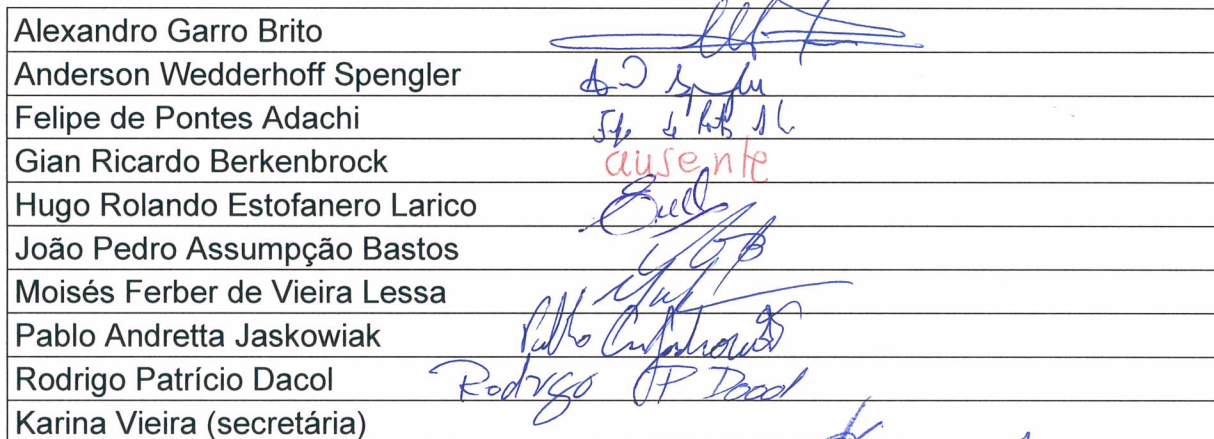 Alexandro Garro Brito
Anderson Wedderhoff Spengler
Felipe de Pontes Adachi
Gian Ricardo Berkenbrock ausente
Hugo Rolando Estofanero Larico
João Pedro Assumpção Bastos
Moisés Ferber de Vieira Lessa
Pablo Andretta Jaskowiak
Rodrigo Patrício Dacol Rodrigo
Karina Vieira (secretária)